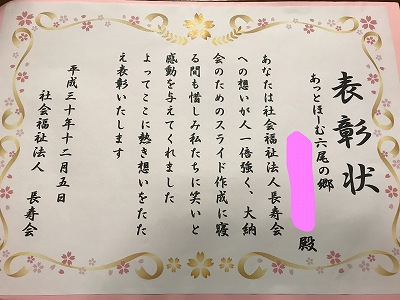 表彰状
あっとほーむ六尾の郷
殿
あなたは社会福祉法人長寿会
への想いが人一倍強く、大納
会のためのスライド作成に寝
る間も惜しみ私たちに笑いと
感動を与えてくれました
よってここに熱き想いをたた
え表彰いたします
平成三十年十二月五日
社会福祉法人　長寿会